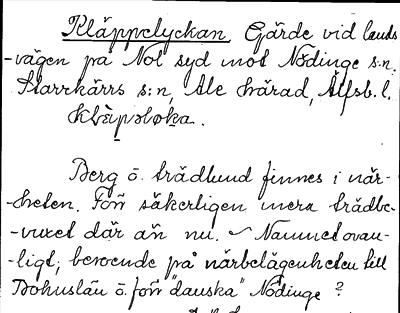 Kläppelyckan Gärde vid lands
-vägen på Nol syd mot Nödinge s:n.
Starrkärrs s:n, Ale härad, Älfsb. l.

Berg o. trädlund finnes i när-
-heten. Förr säkerligen mera trädbe-
-vuxet där än nu. Namnet ovan-
-ligt, beroende på närbelägenheten till
Bohuslän o. förr "danska" Nödinge ?